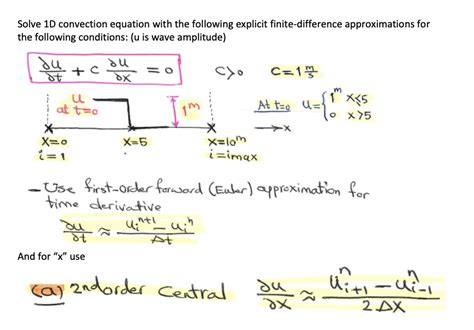 Solve 1D convection equation with the following explicit finite-difference approximations for
the following conditions: (u is wave amplitude)
∂u/∂t + c ∂u/∂x = 0   c>0   c=1 m/s
u
at t=0   1ᵐ   At t=0   u={1ᵐ x≤5
0 x>5
→x
x=0   x=5   x=10ᵐ
i=1   i=imax
- Use first-order forward (Euler) approximation for
time derivative
∂u/∂t ≈ (uᵢⁿ⁺¹ - uᵢⁿ)/Δt
And for "x" use
(a) 2nd order Central   ∂u/∂x ≈ (uⁿᵢ₊₁ - uⁿᵢ₋₁)/2ΔX